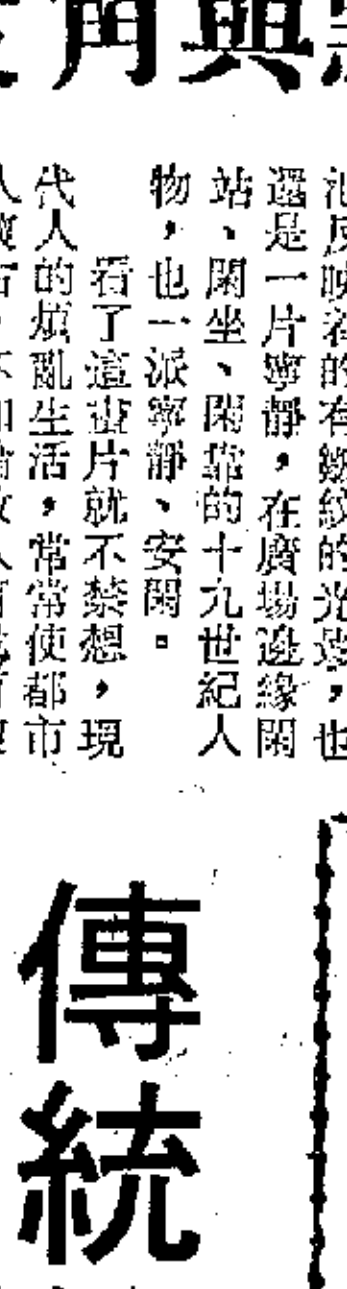 角與
池反映着的有皺紋的光影，也
還是一片寧靜，在廣場邊緣閑
站、閑坐、閑靠的十九世紀人
物，也一派寧靜、安閑。
看了這畫片就不禁想，現
代人的煩亂生活，常常使都市
傳統